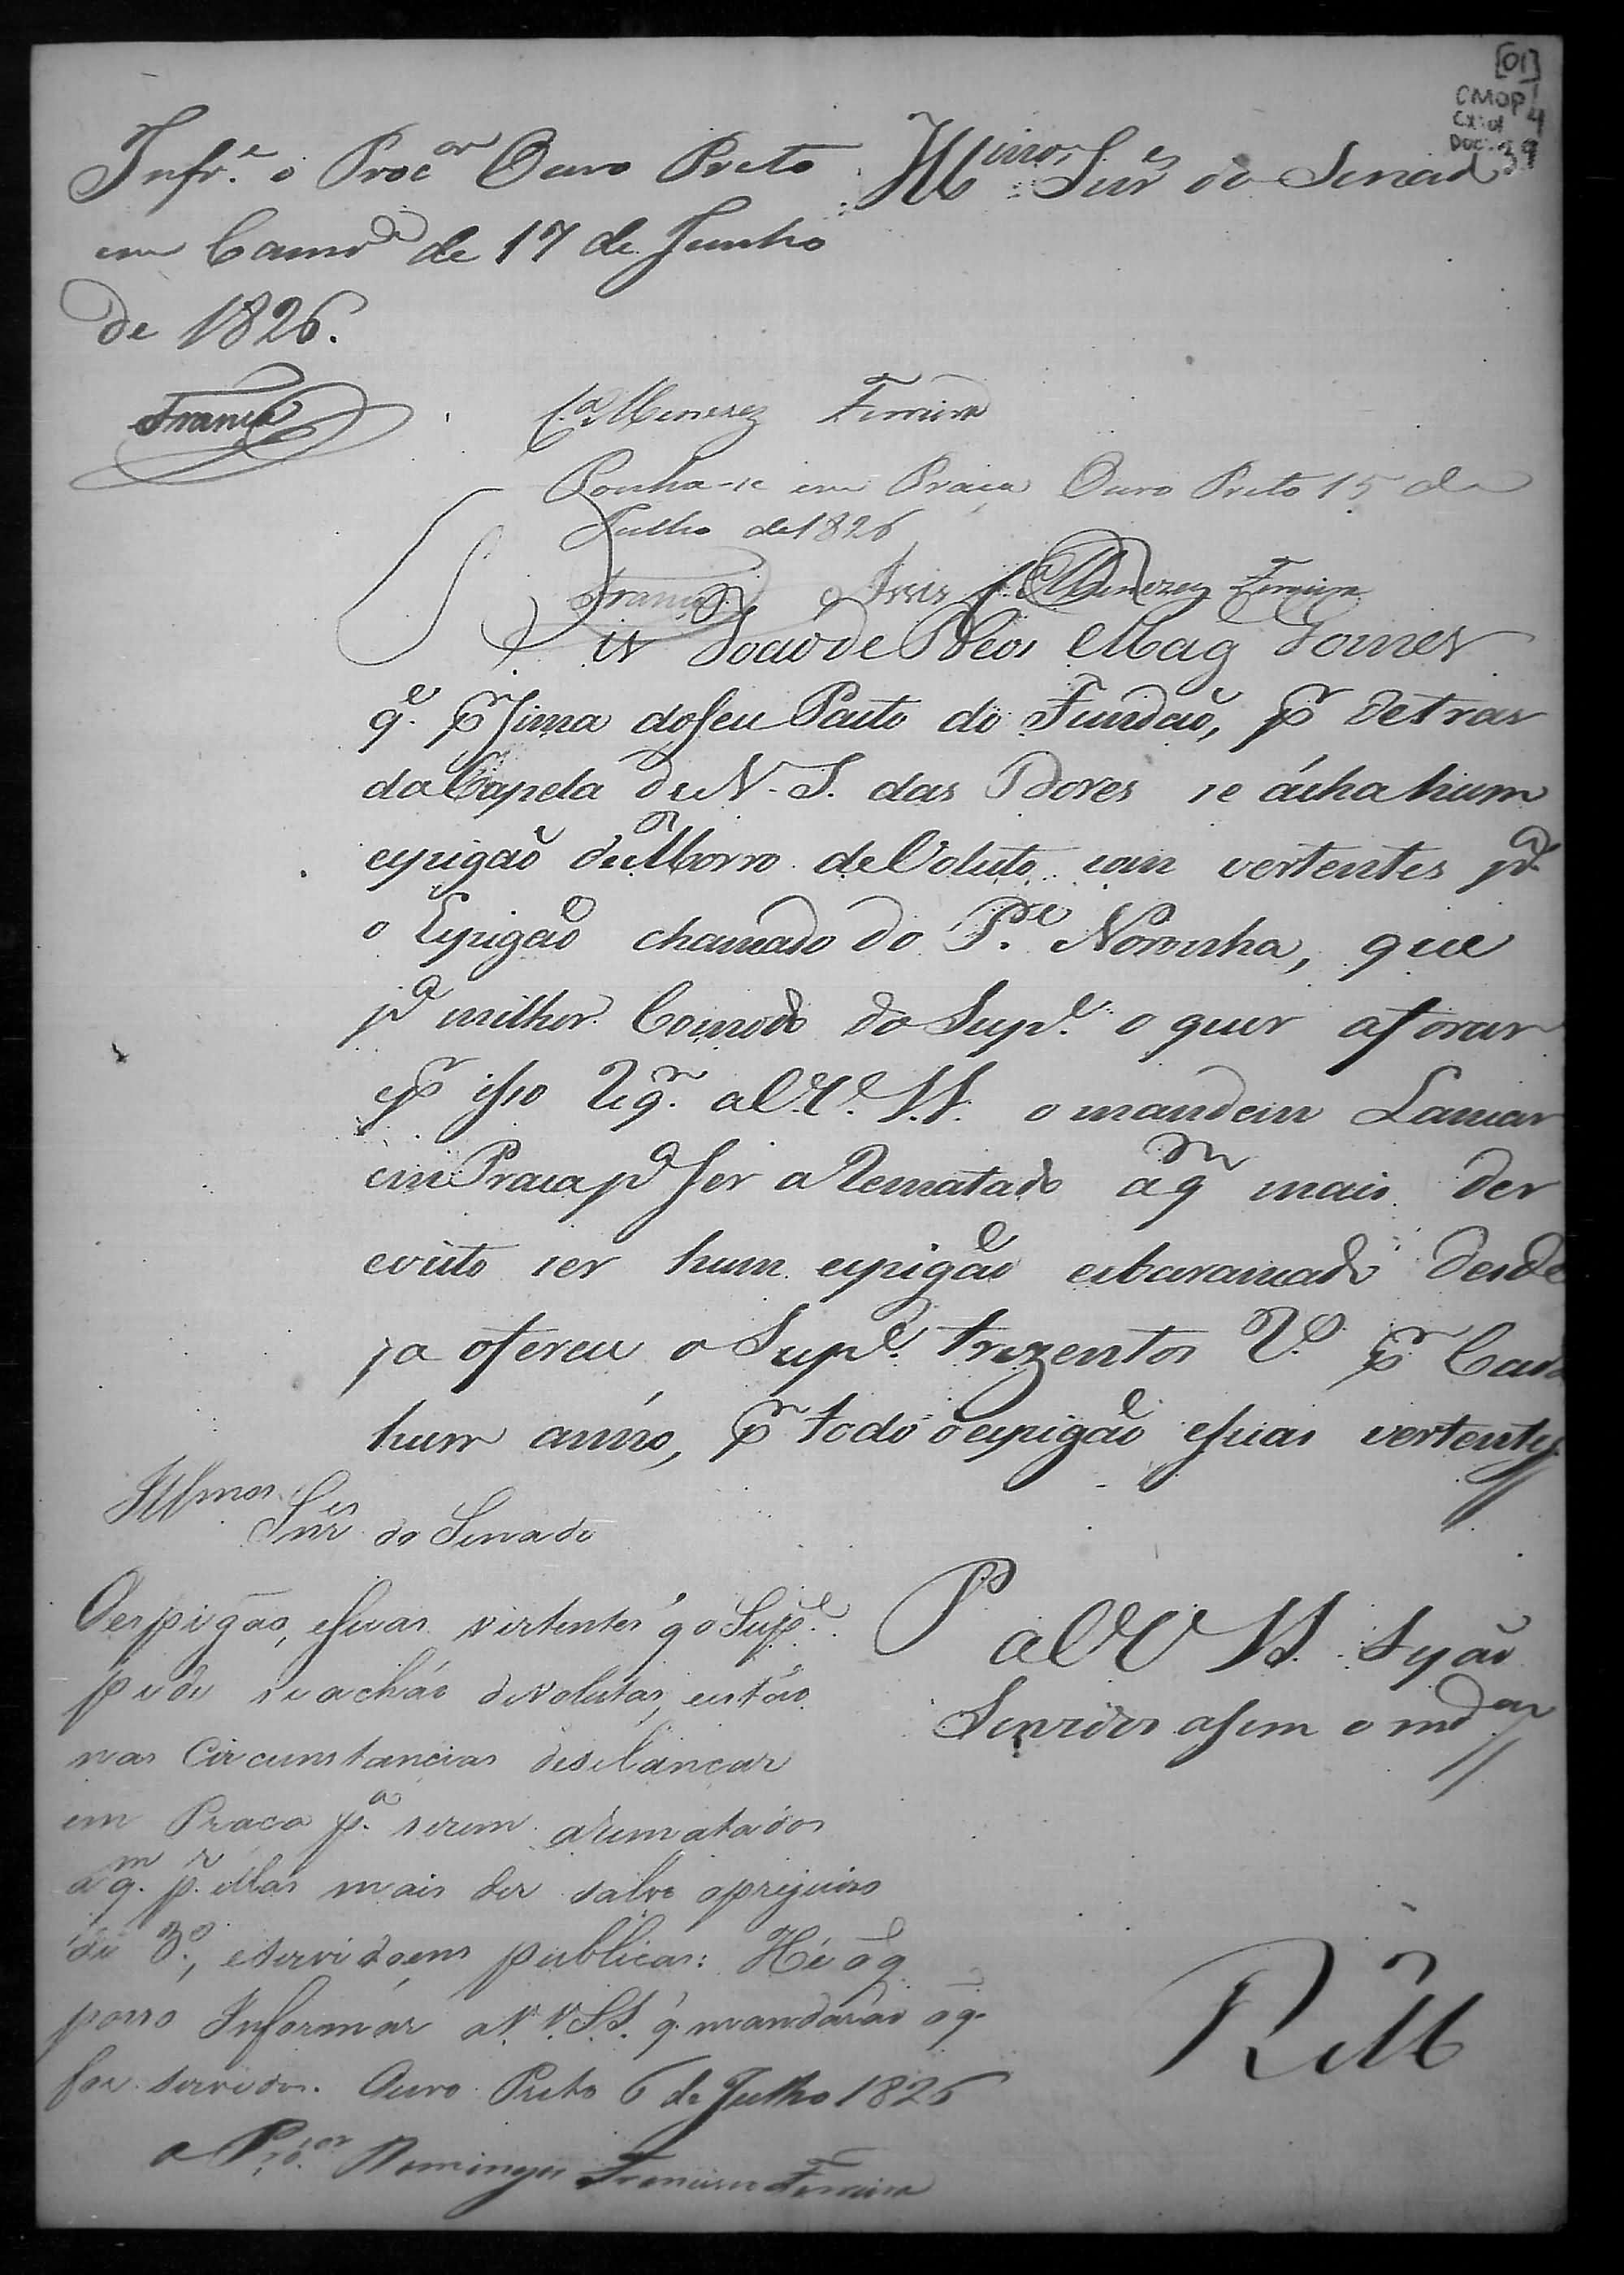 [01]
CMOP
Cx: 01 4
Doc: 39
Infr.e o Procor Ouro Preto
em Camrª de 17 de Junho
de 1826.
França
Illmos Snres do Senado
Menezes Ferreira
Ponha-se em Praça Ouro Preto 15 de
Julho de 1826
França Menezes Ferreira
Diz João de Deos Mag Gomes
q.e pr sima do seu Pasto do Fundaõ, pr detras
da Capela de N. S. das Dores se ácha hum
espigaõ de Morro deVoluto com vertentes pª
o Espigaõ chamado do P.e Noronha, que
pª milhor Comodo do Sup.e o quer aforar
e pr isso Reqr. a V.V. S.S. o mandem Lansar
em Praca pª ser aRematado a qm mais der
evisto ser hum espigaõ esbarancado desde
ja oferece o Sup.e trezentos R.s pr Cada
hum anno, pr todo o espigaõ esuas vertentes
Illmos Snres do Senado
Oespigaõ, esuas vertentes q o Sup.e
pede se acháo devolutas, estáo
nas Circunstancias dese lançar
em Praca p.ª serem arematados
a q.m p.r ellas mais der salvo oprejuizo
de 3.º, eservidoens publicas: Hé o q
posso Informár a V.V.S.S. q. mandaraõ o q.
for servidos. Ouro Preto 6 de Julho 1826
o Pro.or Domingos Francisco Ferreira
P a V V S S. Sejaõ
Servidos asim o mdar
R M